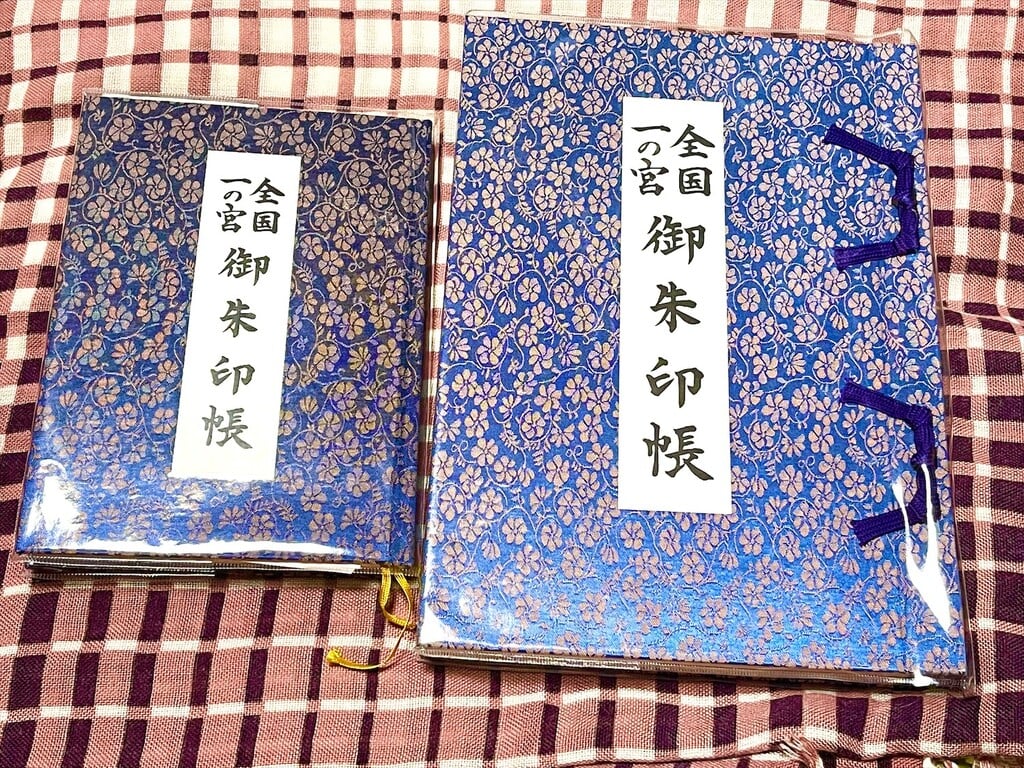 全国
一の宮
御朱印帳
全国
一の宮
御朱印帳